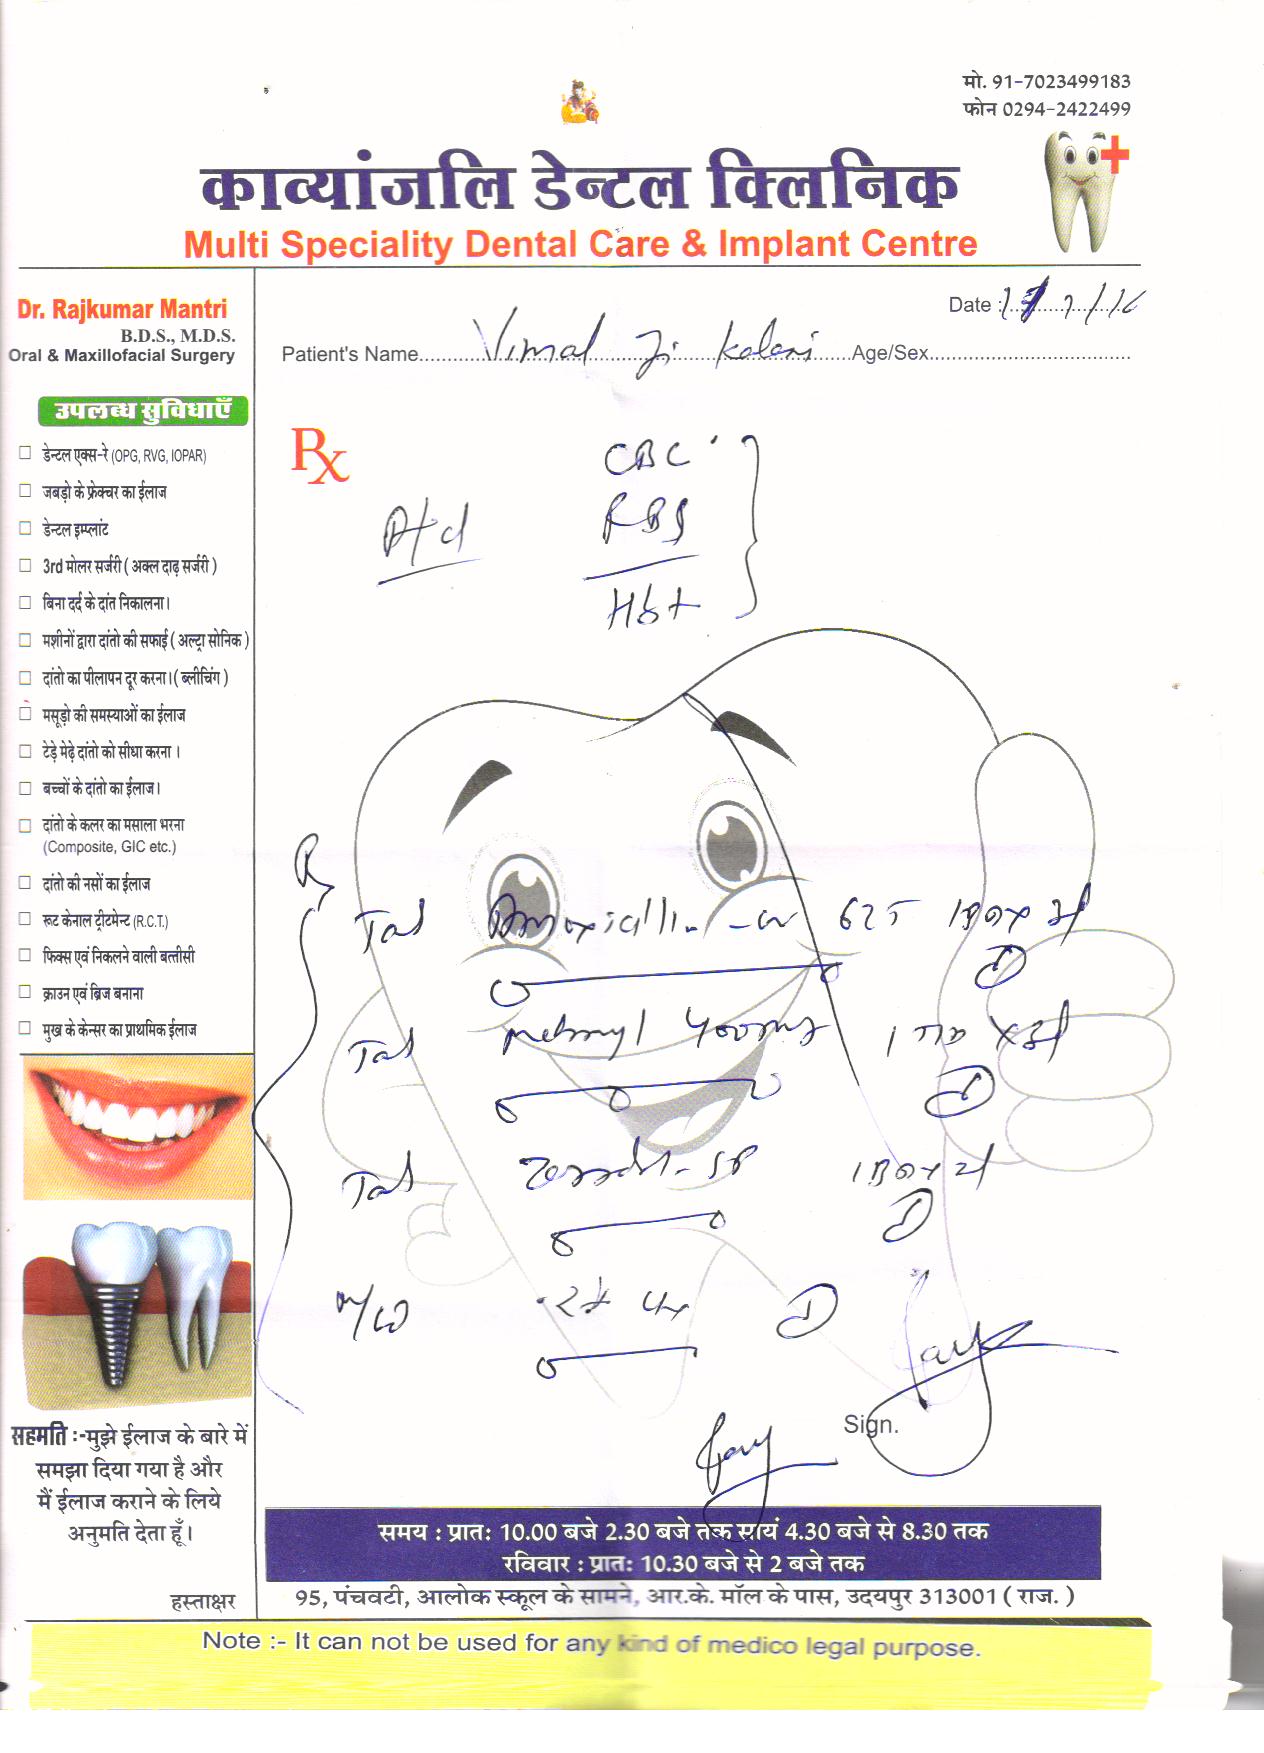 मो. 91-7023499183
फोन 0294-2422499
काव्यांजलि डेन्टल क्लिनिक
Multi Speciality Dental Care & Implant Centre
Dr. Rajkumar Mantri
B.D.S., M.D.S.
Oral & Maxillofacial Surgery
Date :
Patient's Name Vimal Ji Kalani Age/Sex
उपलब्ध सुविधाएँ
डेन्टल एक्स-रे (OPG, RVG, IOPAR)
जबड़ो के फ्रेक्चर का ईलाज
डेन्टल इम्प्लांट
3rd मोलर सर्जरी ( अक्ल दाढ़ सर्जरी )
बिना दर्द के दांत निकालना।
मशीनों द्वारा दांतो की सफाई ( अल्ट्रा सोनिक )
दांतो का पीलापन दूर करना। ( ब्लीचिंग )
मसूड़ो की समस्याओं का ईलाज
टेड़े मेढ़े दांतो को सीधा करना ।
बच्चों के दांतो का ईलाज।
दांतो के कलर का मसाला भरना
(Composite, GIC etc.)
दांतो की नसों का ईलाज
रूट केनाल ट्रीटमेन्ट (R.C.T.)
फिक्स एवं निकलने वाली बत्तीसी
क्राउन एवं ब्रिज बनाना
मुख के केन्सर का प्राथमिक ईलाज
Rx
CBC
RBS
Rx
Tab Amoxicillin - 625
Tab 400mg
Tab - SP
M/W
Sign.
सहमति :-मुझे ईलाज के बारे में
समझा दिया गया है और
मैं ईलाज कराने के लिये
अनुमति देता हूँ।
हस्ताक्षर
समय : प्रातः 10.00 बजे 2.30 बजे तक सायं 4.30 बजे से 8.30 तक
रविवार : प्रातः 10.30 बजे से 2 बजे तक
95, पंचवटी, आलोक स्कूल के सामने, आर.के. मॉल के पास, उदयपुर 313001 ( राज. )
Note :- It can not be used for any kind of medico legal purpose.